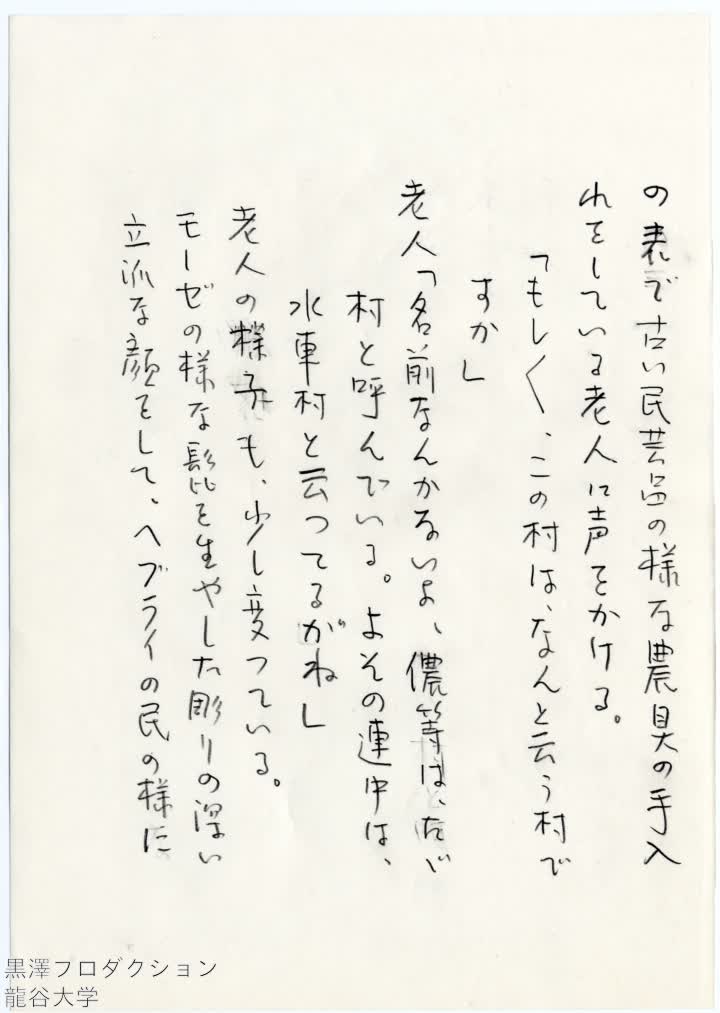 の表で古い民芸品の様な農具の手入
れをしている老人に声をかける。
「もしく、この村は、なんと云う村で
すか」
老人「名前なんかないよ、儂等は、たゞ
村と呼んでいる。よその連中は、
水車村と云つてるがね」
老人の様子も、少し変つている。
モーゼの様な髭を生やした彫りの深い
立派な顔をして、ヘブライの民の様に
黒澤プロダクション
龍谷大学